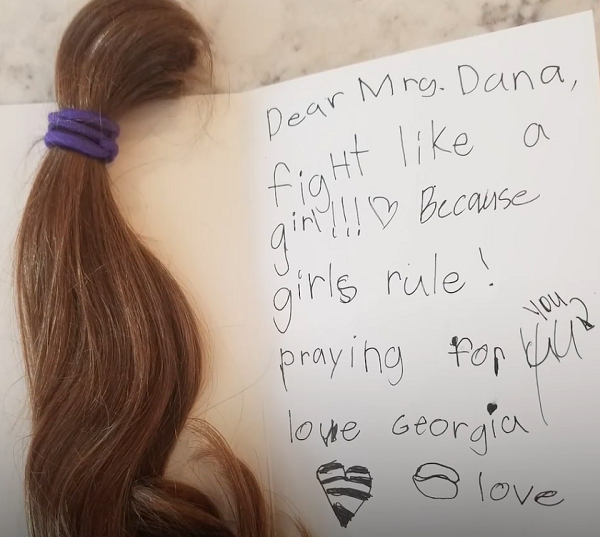 Dear Mrs. Dana,
fight like a
girl!!!♡ Because
girls rule!
praying for you
love Georgia
love